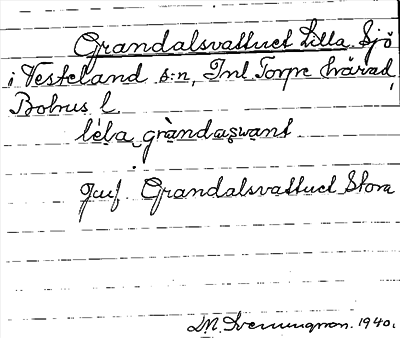 Grandalsvattnet Lilla. Sjö
i Vesteland s:n, Inl Torpe härad,
Bohus l.
lɩ̀la gràndaşvant
Jmf. Grandalsvattnet Stora
D.N. Svenningson. 1940.